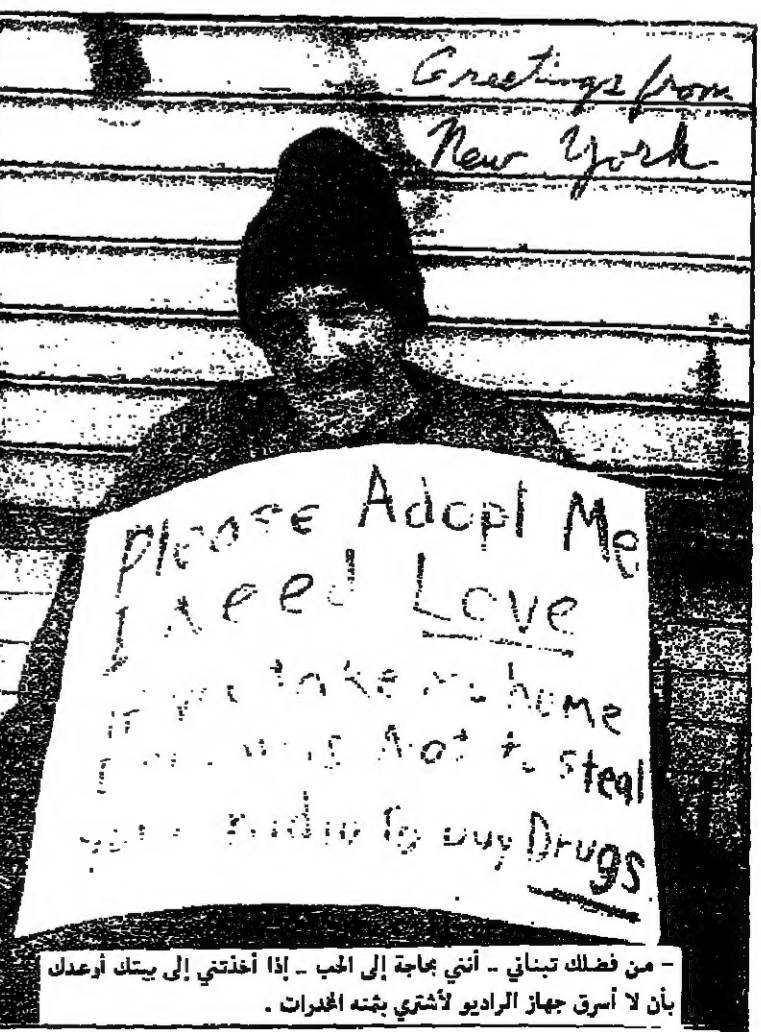 Greetings from
New York
Please Adopt Me
I Need Love
If you take me home
I promise Not to steal
your Radio To buy Drugs
- من فضلك تبناني .. أنني بحاجة إلى الحب .. إذا أخذتني إلى بيتك أوعدك
بأن لا أسرق جهاز الراديو لأشتري بثمنه المخدرات .